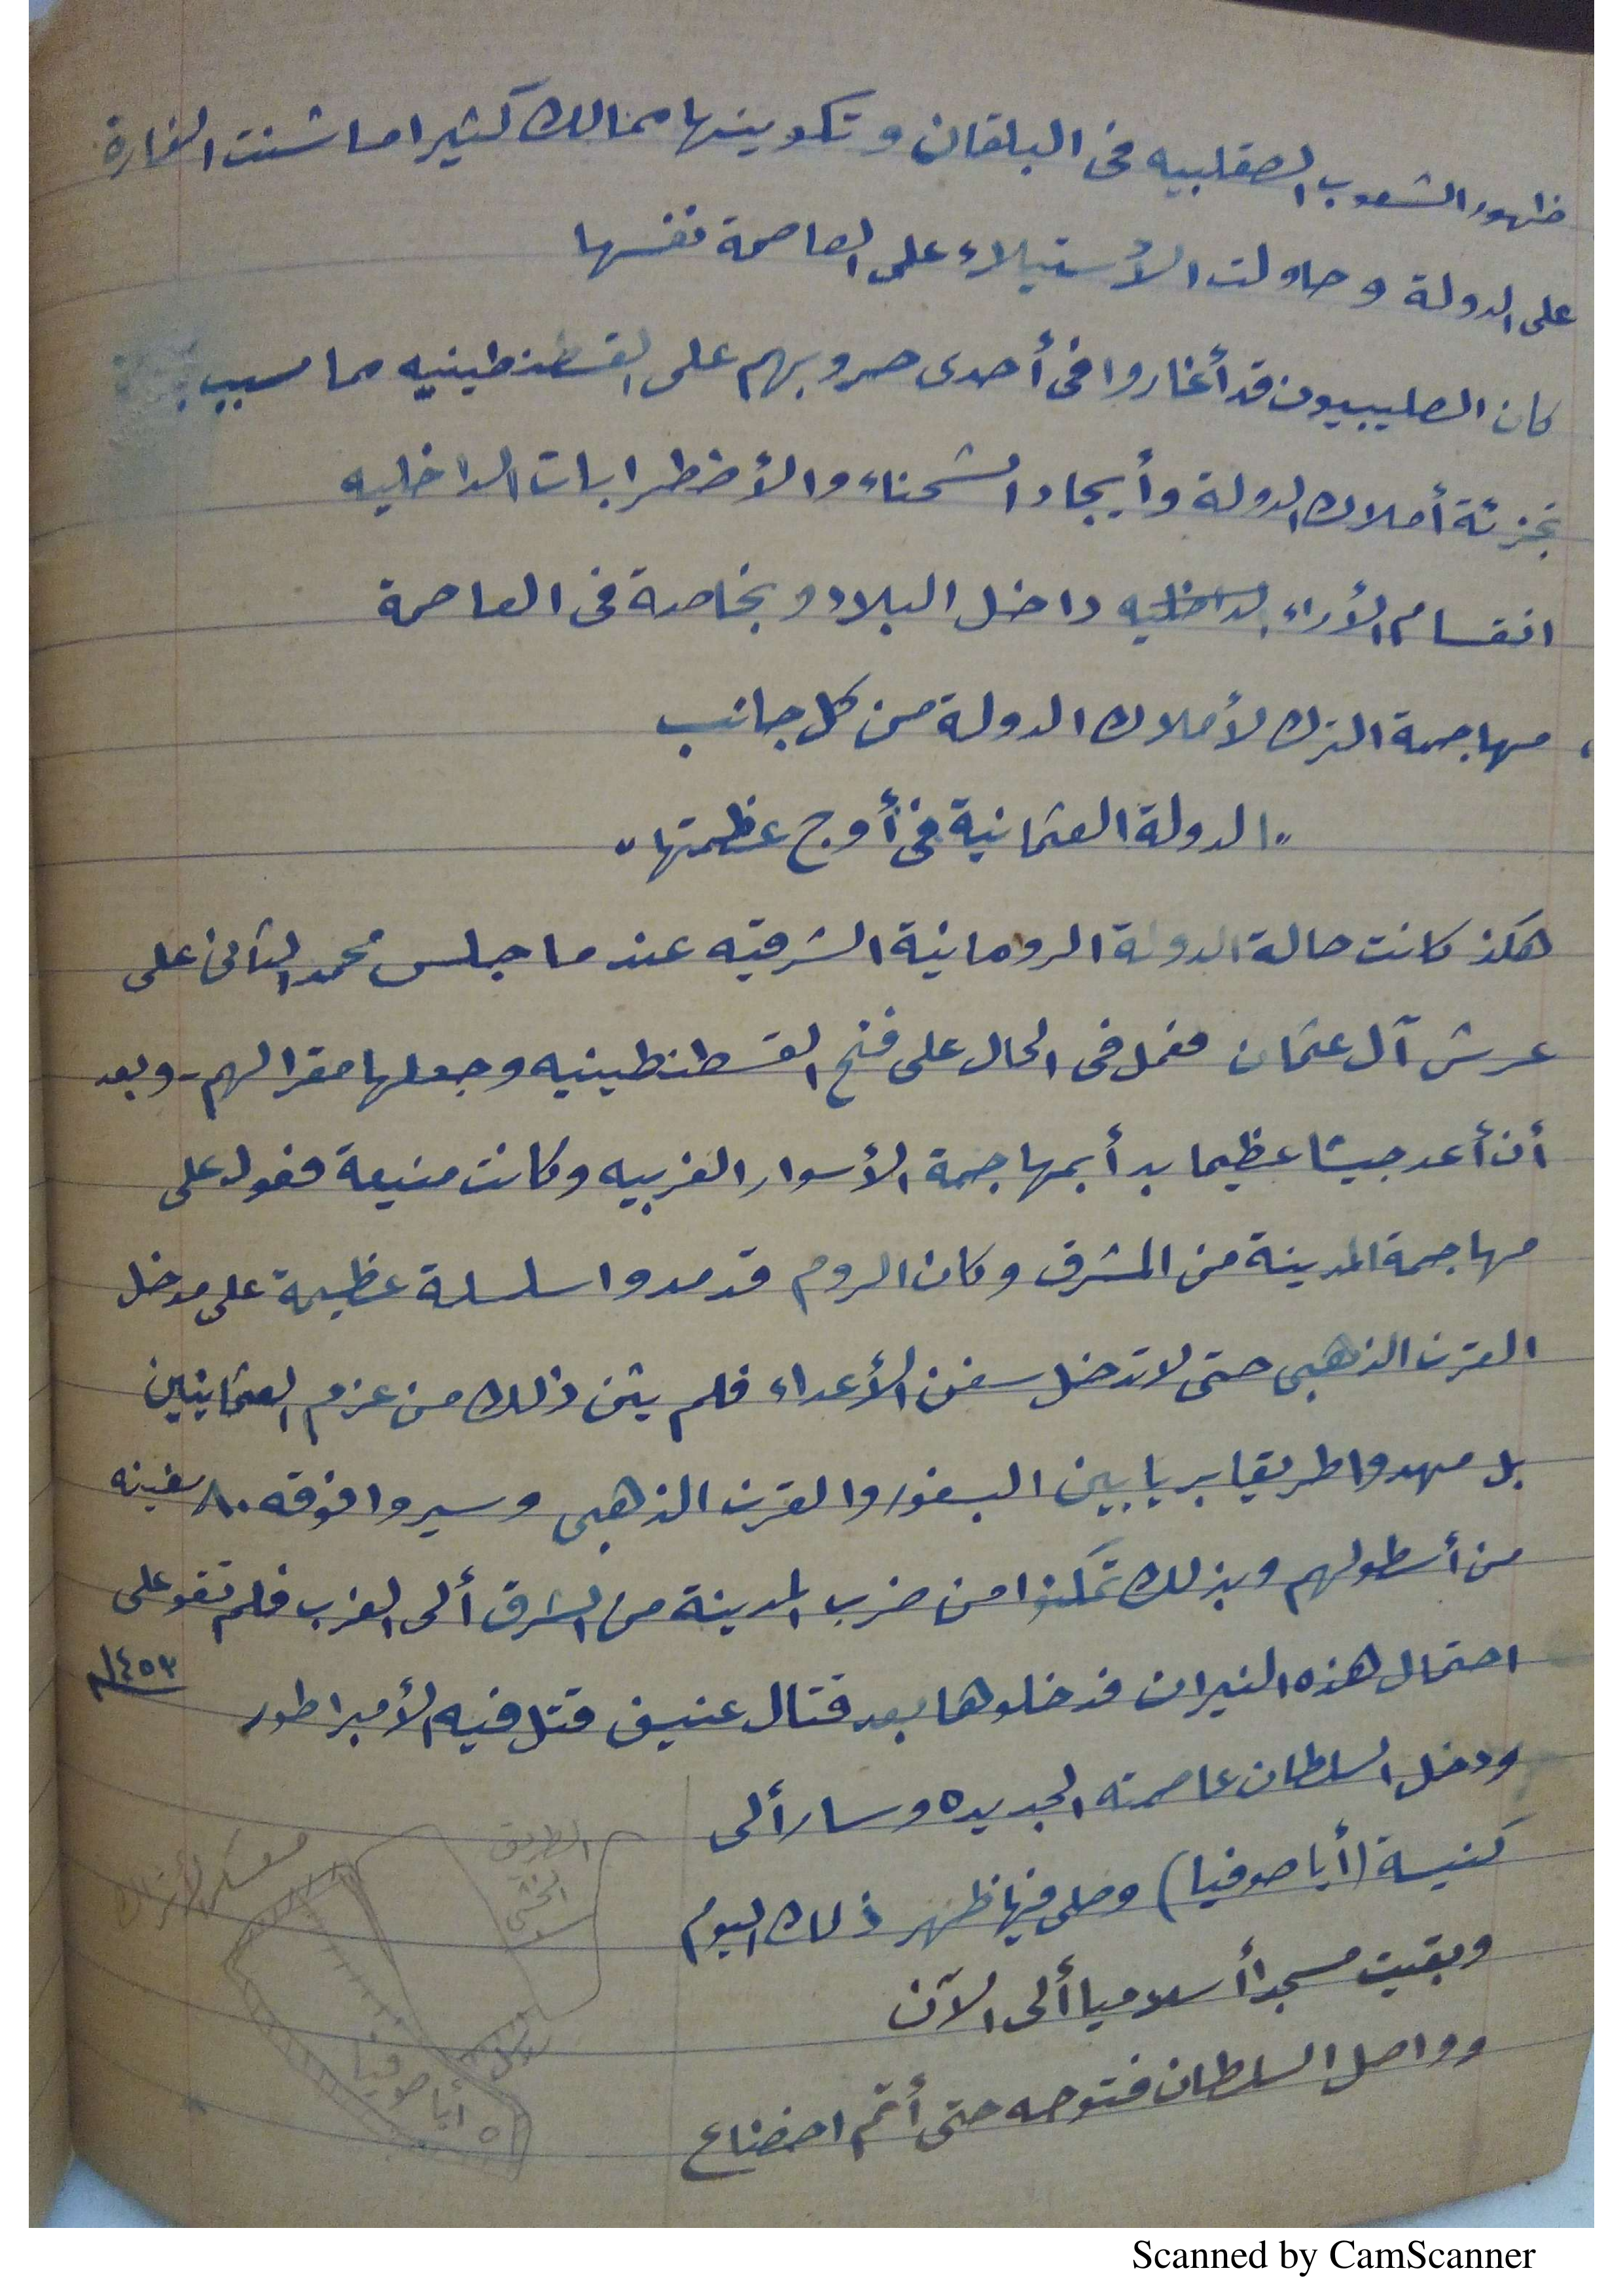 ظهور الشعوب الصقلبيه فى البلقان وتكوينها ممالك كثيرا ما شنت الغارة
على الدولة وحاولت الأستيلاء على العاصمة نفسها
كان الصليبيون قد أغاروا فى أحدى حروبهم على القسطنطينيه مما سبب
تجزئة أملاك الدولة وأيجاد الشحناء والأضطرابات الداخليه
انقسام الأراء داخل البلاد وبخاصة فى العاصمة
مهاجمة الترك لأملاك الدولة من كل جانب
"الدولة العثمانية فى أوج عظمتها"
هكذ كانت حالة الدولة الرومانية الشرقيه عندما جلس محمد الثانى على
عرش آل عثمان فعمل فى الحال على فتح القسطنطينيه وجعلها مقرا لهم - وبعد
أن أعد جيشا عظيما بدأ بمهاجمة الأسوار الغربيه وكانت منيعة فعول على
مهاجمة المدينة من المشرق وكان الروم قد مدوا سلسلة عظيمة على مدخل
القرن الذهبى حتى لا تدخل سفن الأعداء فلم يثن ذلك من عزم العثمانيين
بل مهدوا طريقا بريا بين البسفور والقرن الذهبى وسيروا فوقه ٨٠ سفينه
من أسطولهم وبذلك تمكنوا من ضرب المدينة من الشرق ألى الغرب فلم تقو على
احتمال هذه النيران فدخلوها بعد قتال عنيف قتل فيه الأمبراطور ١٤٥٣م
ودخل السلطان عاصمته الجديده وسار ألى
كنيسة (أيا صوفيا) وصلى فيها ظهر ذلك اليوم
وبقيت مسجدا أسلاميا ألى الآن
وواصل السلطان فتوحه حتى أتم اخضاع
الطريق
الخشبى
معسكر الأتراك
أيا صوفيا
Scanned by CamScanner